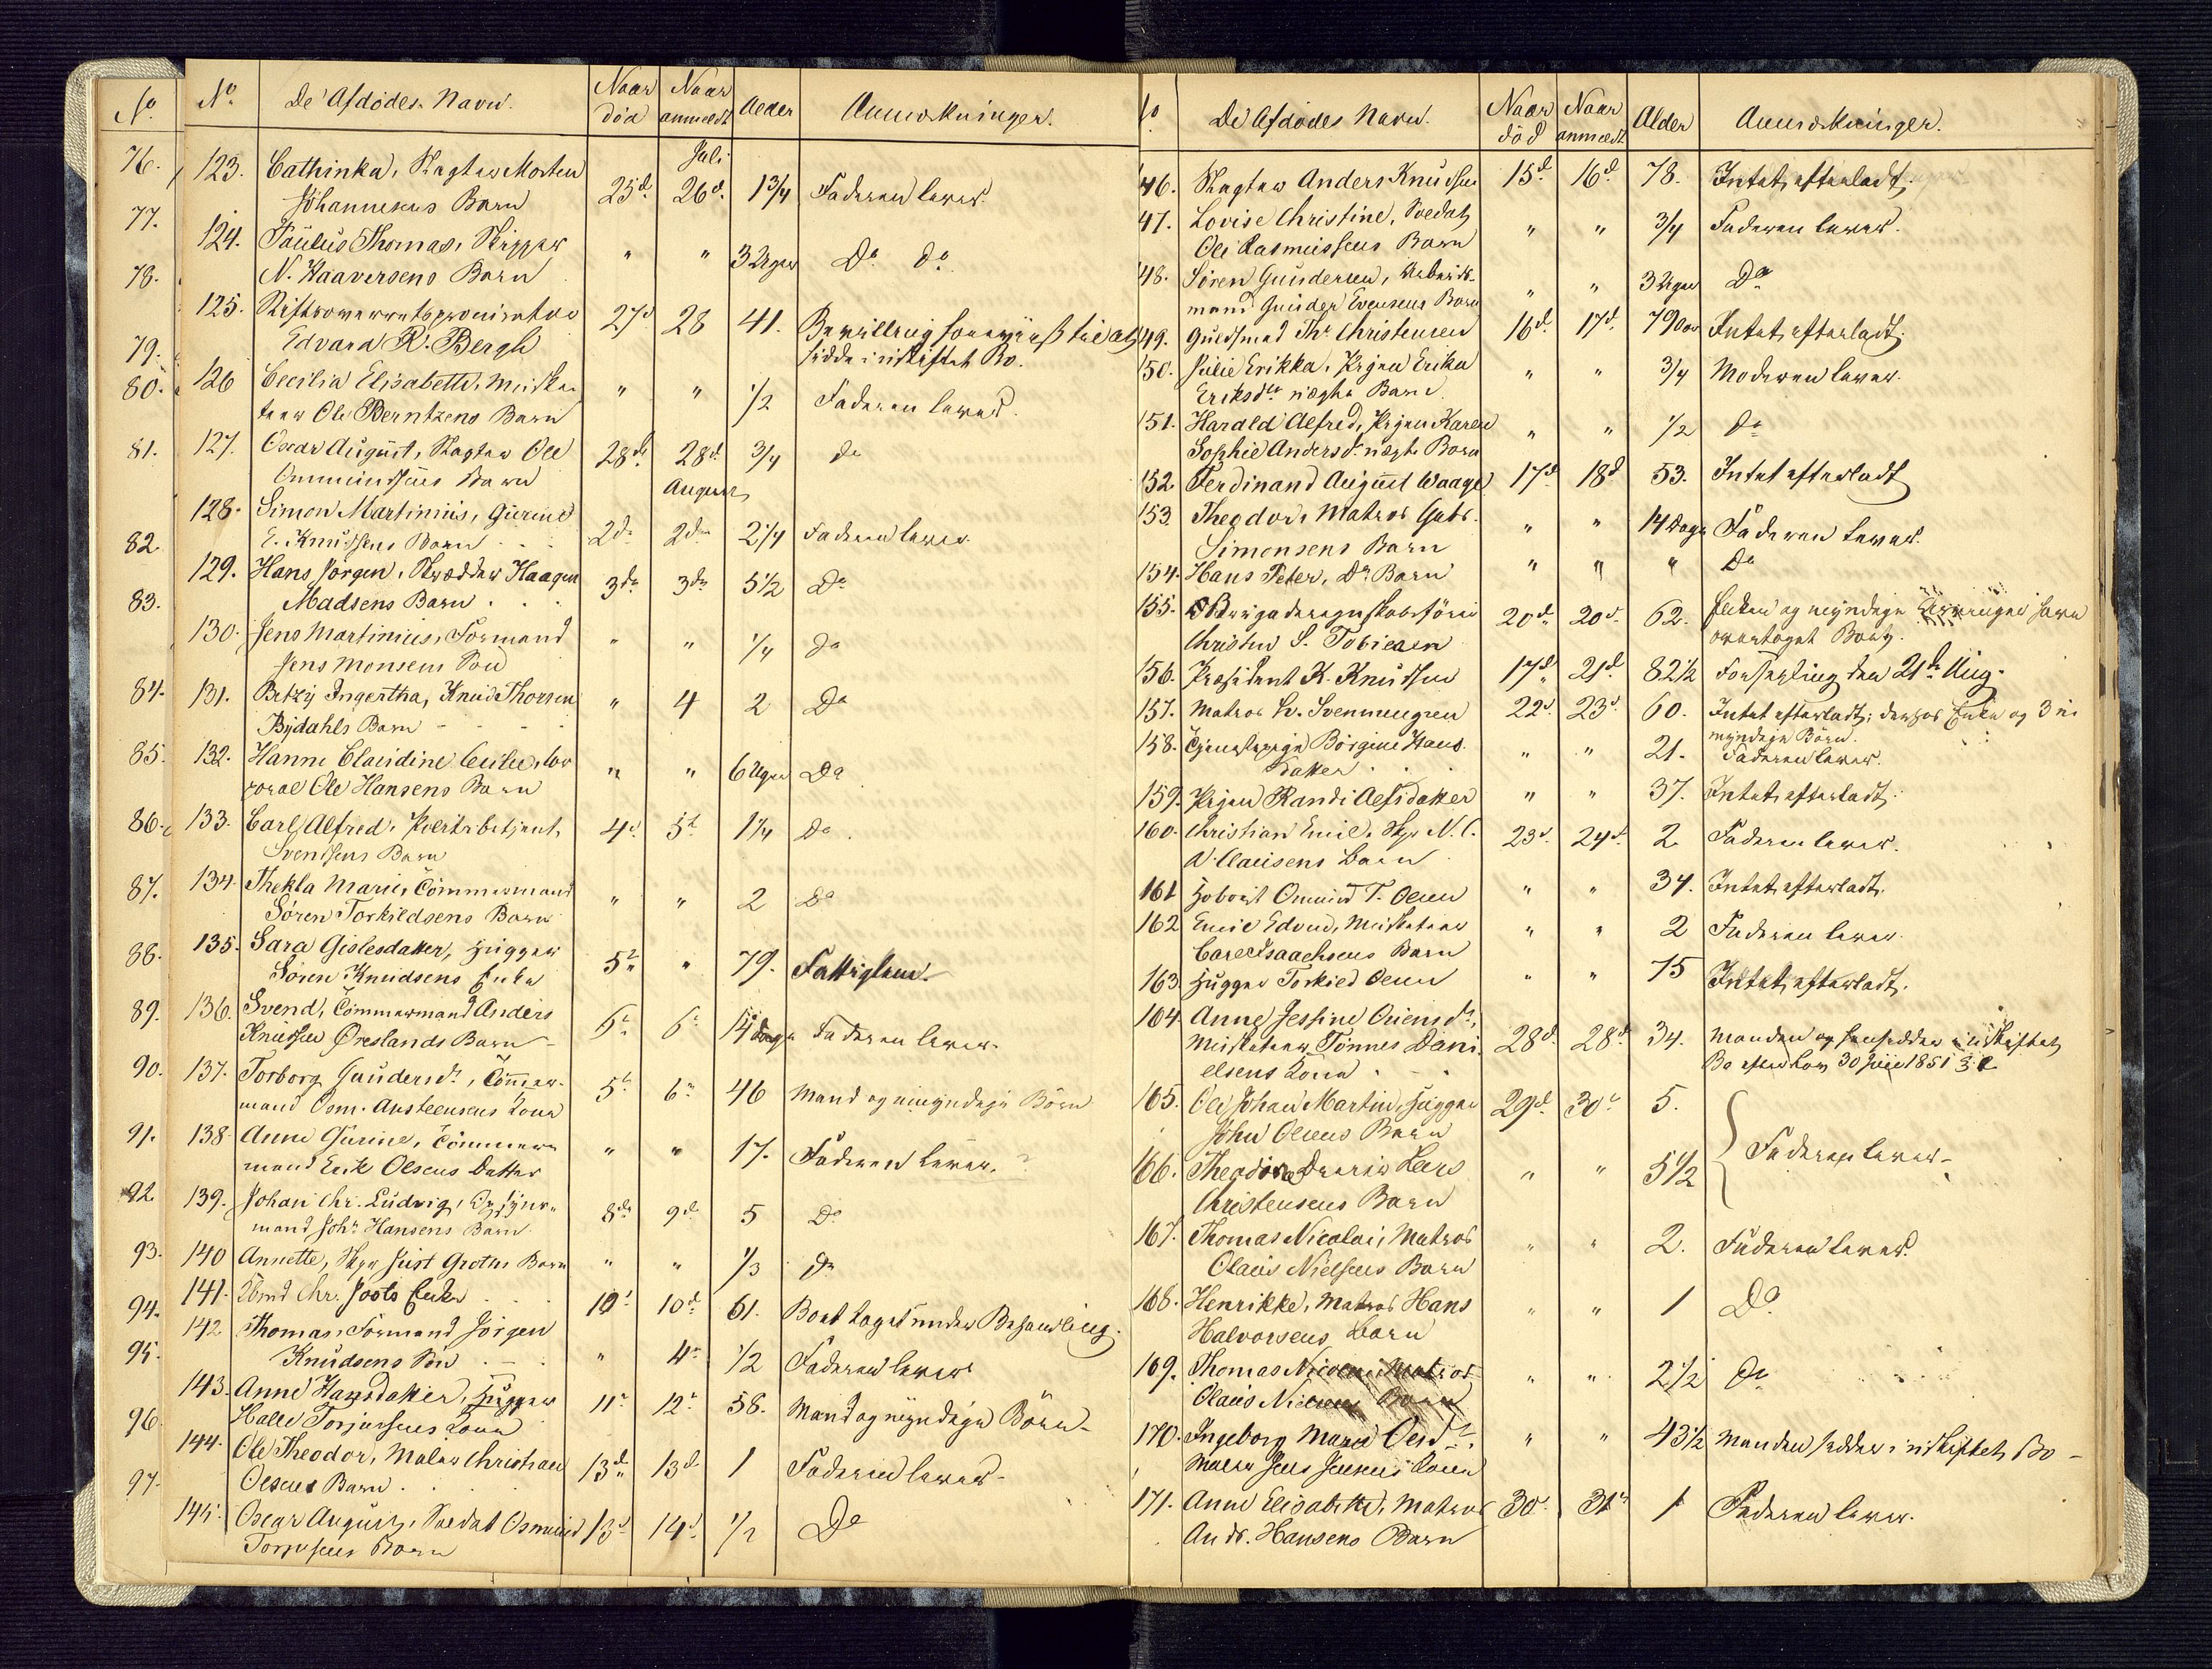 No
76.
77.
78.
79.
80.
81.
82.
83.
84.
85.
86.
87.
88.
89.
90.
91.
92.
93.
94.
95.
96.
97.
No De Afdödes Navn. Naar död Naar anmeldt Alder Anmærkninger.
Juli
123. Cathinka, Slagter Morten
Johannesens Barn 25d 26d 1 3/4 Faderen lever.
124. Paulus Thomas, Skipper
N. Haaversens Barn " " 3 Uger Do Do
125. Stiftsoverretsprocurator
Edvard R. Bergh 27d 28 41. Bevilling for Enken at
sidde i uskiftet Bo.
126 Cecilia Elisabeth, Muske-
teer Ole Berntzens Barn " " 1/2 Faderen lever.
127. Oscar August, Slagter Ole
Ommundsens Barn 28de 28d 3/4 do
August
128. Simon Martinius, Gjørtler
E. Knudsens Barn 2d 2d 2 1/4 Faderen lever
129. Hans Jörgen, Skrædder Haagen
Madsens Barn 3de 3de 5 1/2 Do
130. Jens Martinius, Formand
Jens Monsens Sön " " 1/4 do
131. Betzy Ingertha, Knud Thorsen
Bydahls Barn " 4 2 Do
132. Hanne Claudine Cecilie, Cor
poral Ole Hansens Barn " " 6 Uger Do
133. Carl Alfred, Politibetjent
Svendsens Barn 4d 5t 1 1/4 Do
134. Thekla Marie, Tömmermand
Sören Torkildsens Barn " " 2 Do
135. Sara Gislesdatter, Hugger
Sören Knudsens Enke 5t " 79. Fattiglem.
136. Svend, Tömmermand Anders
Knudsen Øreslands Barn 6t 6t 14 dage Faderen lever.
137. Torborg Gundersdr, Tömmer-
mand Osm. Austeensens Kone 5t 6t 46 Mand og umyndige Börn
138 Anne Gurine, Tömmer
mand Erik Olsens Datter " " 17. Faderen lever.
139. Johan Chr. Ludvig, Opsyns-
mand Johs Hansens Barn. 8de 9de 5 Do
140 Annette, Skpr Just Groths Barn " " 1/3 do
141. Chr. Joots Enke 10d 10d 61. Boet taget under Behandling.
142 Thomas, Formand Jörgen
Knudsens Sön " 4d 1/2 Faderen lever
143. Anne Hansdatter, Hugger
Halle Torjussens Kone 11t 12t 58. Mand og myndige Börn
144. Ole Theodor, Maler Christian
Olsens Barn 13de 13d 1 Faderen lever
145. Oscar August, Soldat Osmund
Torjusens Barn 13d 14d 1/2 Do
No De Afdödes Navn. Naar död Naar anmeldt Alder Anmærkninger.
146. Slagter Anders Knudsen 15d 16d 78. Intet efterladt.
147. Lovise Christine, Soldat
Ole Rasmussens Barn " " 3/4 Faderen lever.
148. Sören Gundersen, Arbeids-
mand Gunder Evensens Barn " " 3 Uger Do
149. Guldsmed Thr Christensen 16d 17d 79 Intet efterladt.
150. Julie Erikka, Pigen Erika
Eriksdr uægte Barn " " 3/4 Moderen lever.
151. Harald Alfred, Pigen Karen
Sophie Andersdr uægte Barn " " 1/2 do
152. Ferdinand August Waage 17d 18d 53. Intet efterladt
153. Theodor, Matros Gabr.
Simonsens Barn " " 14 Dage Faderen lever.
154. Hans Peter, Do Barn " " " Do
155. Brigaderegnskabsförer
Christen S. Tobiesen 20d 20d 62. Enken og myndige Arvinger have
overtaget Boet.
156. Præsident K. Knudsen 17d 21d 82 1/2 Forsegling den 21de Aug.
157. Matros H. Svenmungsen 22d 23d 60. Intet efterladt; derhos Enke og 3 u-
myndige Börn.
158. Tjenestepige Börgine Hans-
datter " " 21. Faderen lever.
159. Pigen Randi Alfsdatter " " 37. Intet efterladt.
160. Christian Emil, Skpr N. C.
A. Clausens Barn 23d 24d 2 Faderen lever.
161 Hoboist Omund T. Olsen " " 34. Intet efterladt.
162 Emil Edvard, Musketeer
Carl Isaachsens Barn " " 2 Faderen lever.
163. Hugger Torkild Olsen " " 75 Intet efterladt.
164. Anne Jessine Oriensdr,
Musketeer Tönnes Dani-
elsens Kone 28d 28d 34. Manden og hensidder i uskiftet
Bo efter Lov 30 Juli 1851 §
165. Ole Johan Martin, Hugger
John Olsens Barn 29d 30t 5.
166. Theodor Lars
Christensens Barn " " 5 1/2 Faderen lever
167. Thomas Nicolai, Matros
Olaus Nielsens Barn " " 2. Faderen lever.
168. Henrikke, Matros Hans
Halvorsens Barn " " 1 Do
169. Thomas Nicolai Matros
Olaus Nielsens Barn " " 2 1/2 Do
170. Ingeborg Marie Olsdr,
Maler Jens Jensens Kone " " 43 1/2 Manden sidder i uskiftet Bo
171. Anne Elisabeth, Matros
Andr. Hansens Barn 30d 31t 1 Faderen lever.